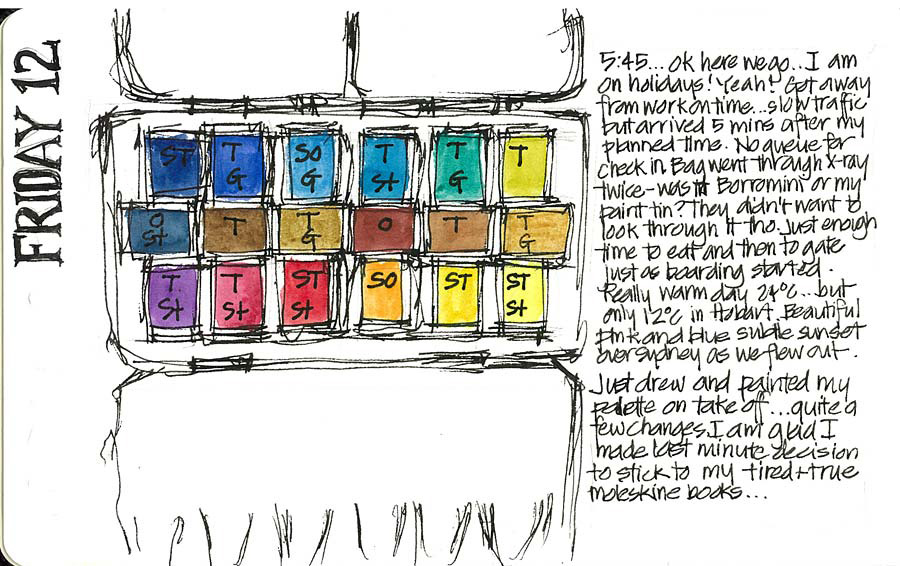 FRIDAY 12
ST
T
G
SO
G
T
St
T
G
T
O
St
T
T
G
O
T
T
G
T
St
T
St
ST
St
SO
ST
ST
St
5:45... ok here we go.. I am
on holidays! Yeah! Got away
from work on time...slow traffic
but arrived 5 mins after my
planned time. No queue for
check in. Bag went through x-ray
twice-was it Borromini or my
paint tin? They didn't want to
look through it tho. Just enough
time to eat and then to gate
just as boarding started.
Really warm day 24°c...but
only 12°c in Hobart. Beautiful
pink and blue subtle sunset
over sydney as we flew out.
Just drew and painted my
palette on take off...quite a
few changes. I am glad I
made last minute decision
to stick to my tired+true
moleskine books...